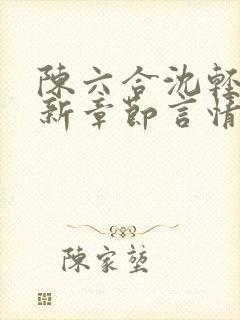 陳六合沈輕
新章節言情
陳家堃